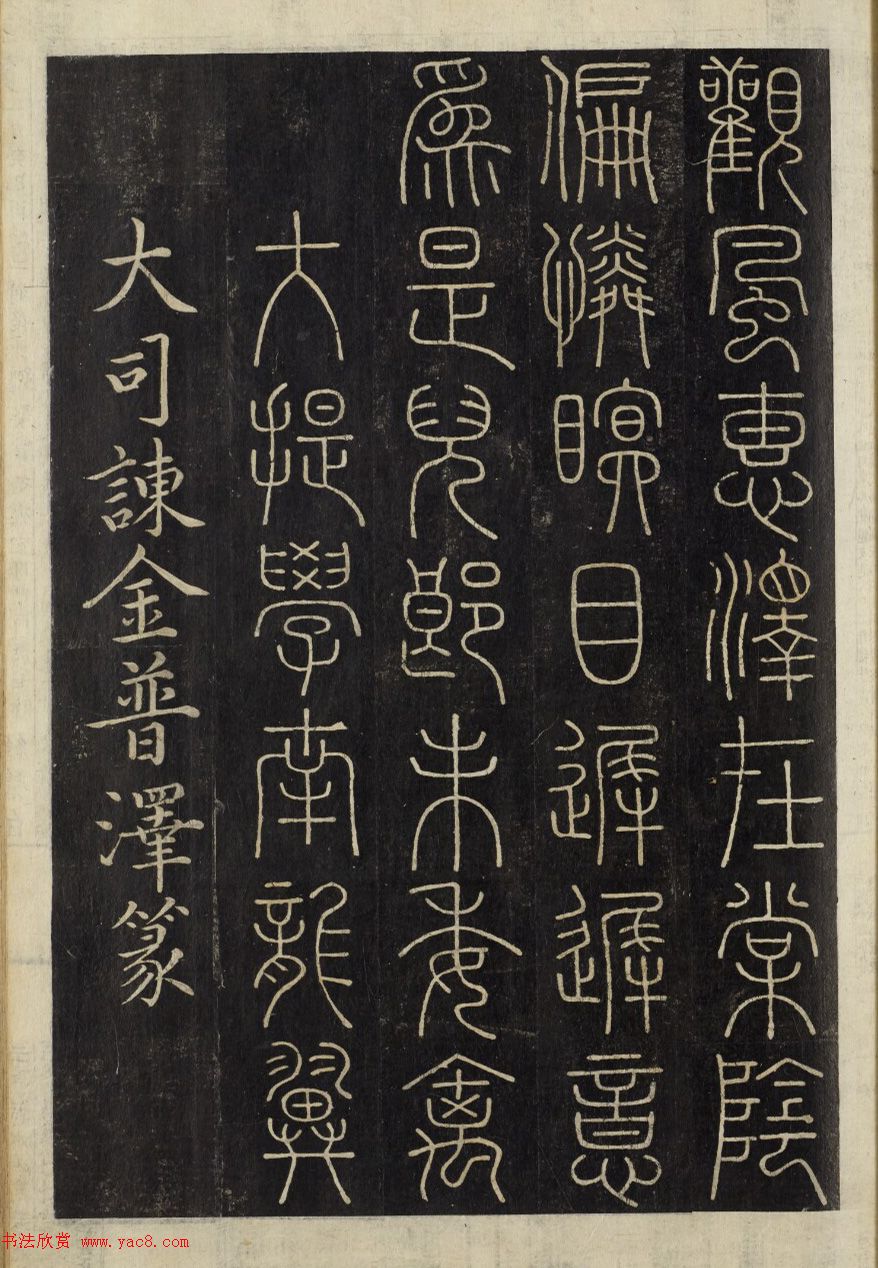 觀風惠澤在棠陰
偏憐瞑目遲遲意
爲是兒郎未委禽
大提學南龍翼
大司諫金普澤篆
书法欣赏 www.yac8.com